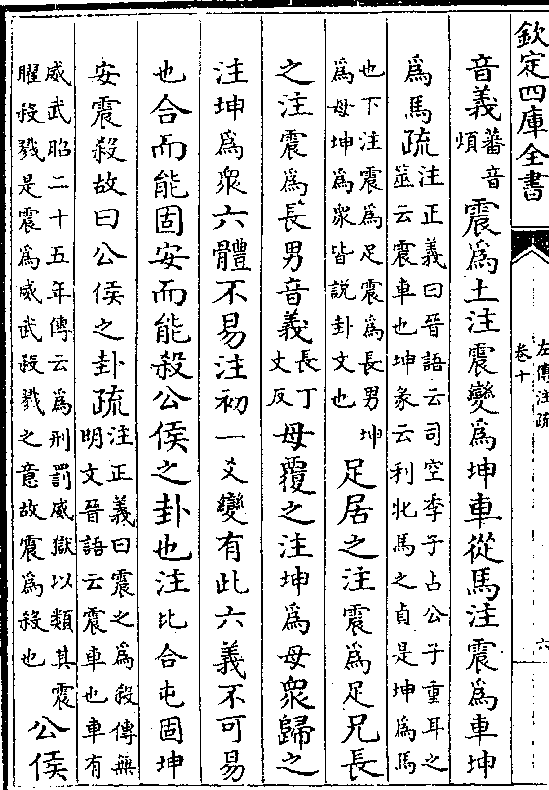 欽定四庫全書
左傳注疏
卷十
六
音義蕃音
煩震為土注震變為坤車從馬注震為車坤
為馬疏注正義曰晉語云司空季子占公子重耳之
筮云震車也坤彖云利牝馬之貞是坤為馬
也下注震為足震為長男坤
為母坤為衆皆說卦文也足居之注震為足兄長
之注震為長男音義長丁
丈反母覆之注坤為母衆歸之
注坤為衆六體不易注初一爻變有此六義不可易
也合而能固安而能殺公侯之卦也注比合屯固坤
安震殺故曰公侯之卦疏注正義曰震之為殺傳無
明文晉語云震車也車有
威武昭二十五年傳云為刑罰威獄以類其震
曜殺戮是震為威武殺戮之意故震為殺也公侯